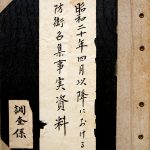 昭和二十年四月以降における
防衛召集事実資料
調査係